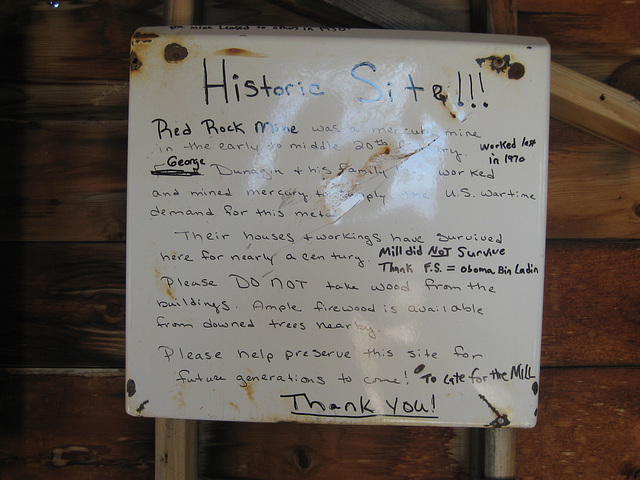 Red Mine Leased to others in 1950's
Historic Site!!!
Red Rock Mine was a mercury mine
in the early to middle 20th worked last
George in 1970
Dunagin & his family worked
and mined mercury to supply the U.S. wartime
demand for this metal
Their houses & workings have survived
here for nearly a century. Mill did NOT Survive
Thank F.S. = Obama Bin Ladin
Please DO NOT take wood from the
buildings. Ample firewood is available
from downed trees nearby.
Please help preserve this site for
future generations to come! To Late for the Mill
Thank You!